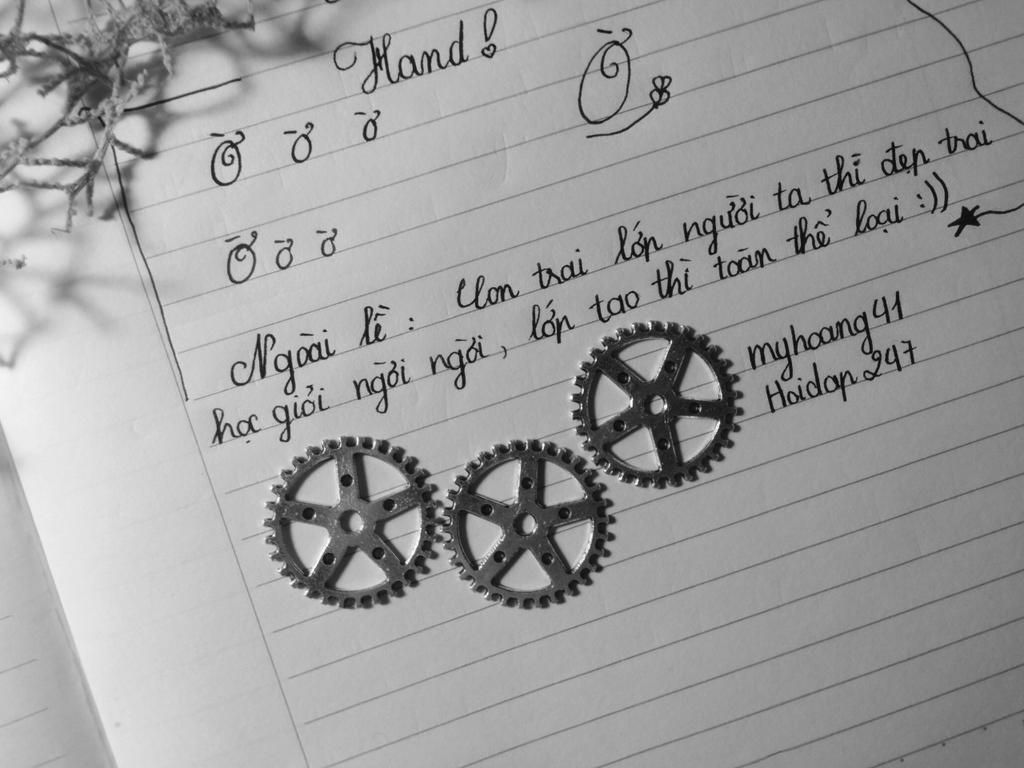 Hand!
Ờ
Ờ ờ ờ
Ờ ờ ờ
Ngoài lề: Con trai lớp người ta thì đẹp trai
học giỏi ngời ngời, lớp tao thì toàn thể loại :))
myhoang41
Hoidap247